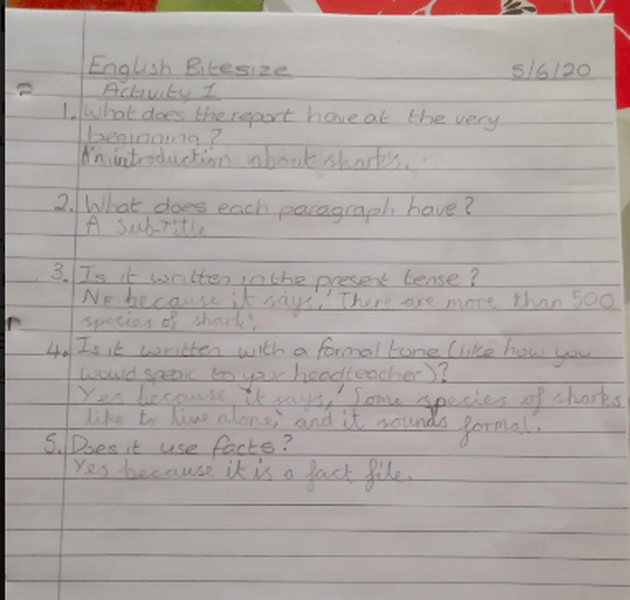 English Bitesize 5/6/20
Activity 1
1. What does the report have at the very
beginning?
An introduction about sharks.
2. What does each paragraph have?
A Sub-Title
3. Is it written in the present tense?
No because it says, 'There are more than 500
species of shark'.
4. Is it written with a formal tone (like how you
would speak to your headteacher)?
Yes because it says, 'Some species of sharks
like to live alone', and it sounds formal.
5. Does it use facts?
Yes because it is a fact file.